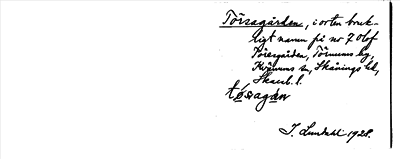 Törsagården, i orten bruk-
ligt namn på nr 7 Olof
Törsgården, Törnums by,
Kvänums sn, Skånings hd,
Skarab. l.
tó̱sagán
I. Lundahl 1928.